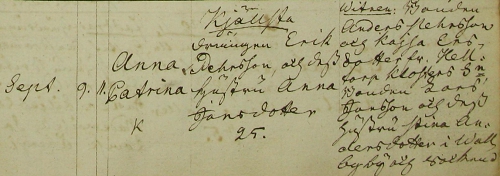 Sept. 9. 11.
Anna
Catrina
K
Kjällsta
Drängen Erik
Pehrsson och dess
hustru Anna
Jansdotter
25.
Witnen: Bonden
Anders Pehrsson
och Kajsa
dotter fr.
Kloster
Bonden Lars
Jansson och dess
hustru Stina An-
dersdotter i Wall
by och